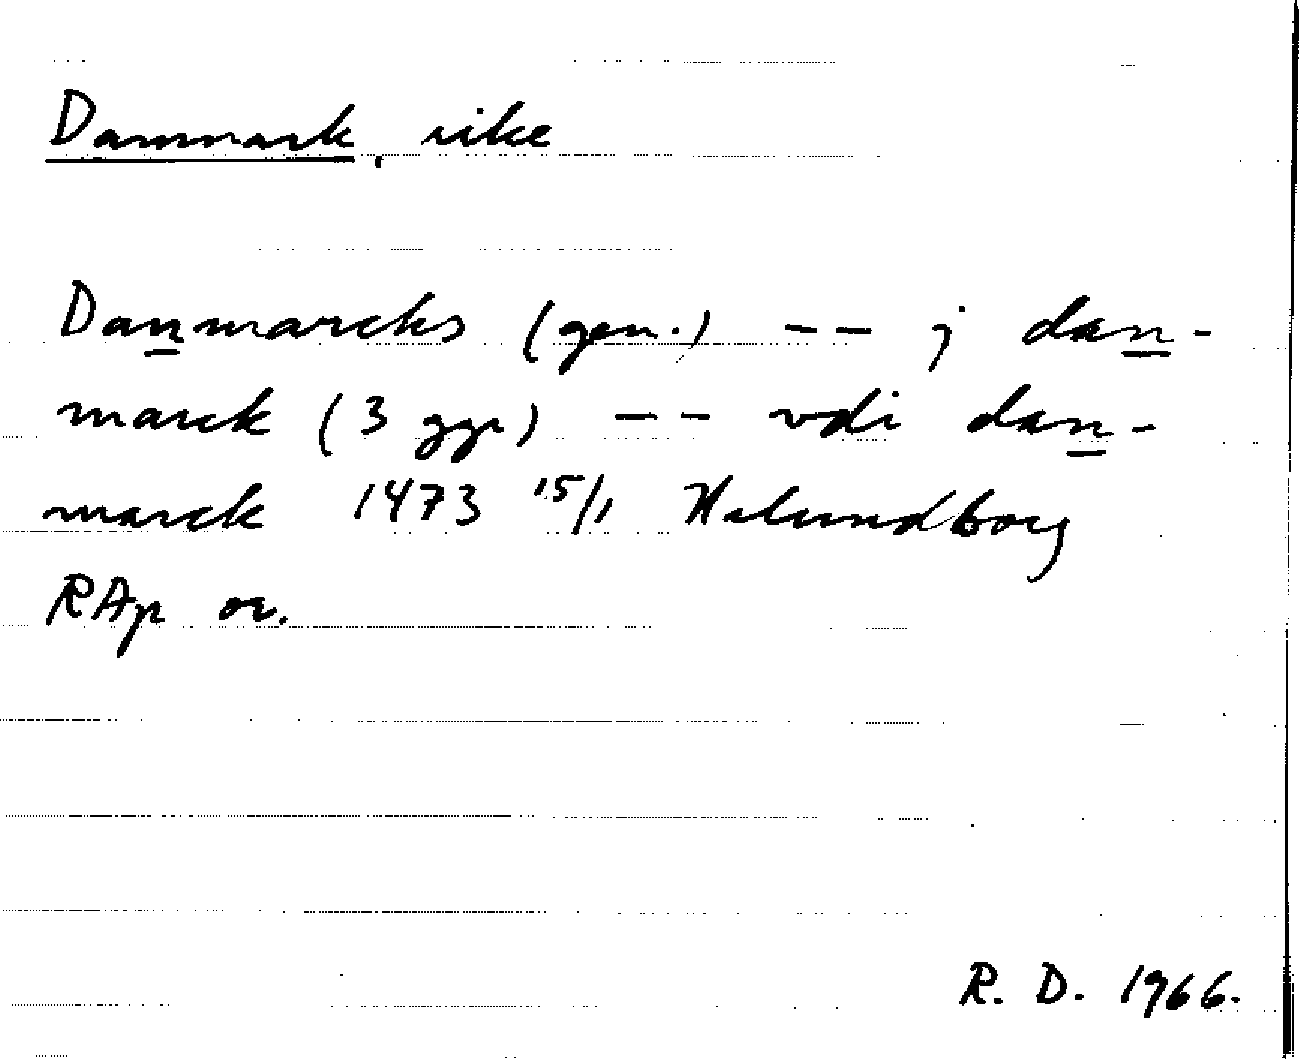 Danmark, rike
Danmarcks (gen.) -- j dan-
marck (3 ggr) -- vdi dan-
marck 1473 15/1 Kalundborg
RAp or.
R. D. 1966.